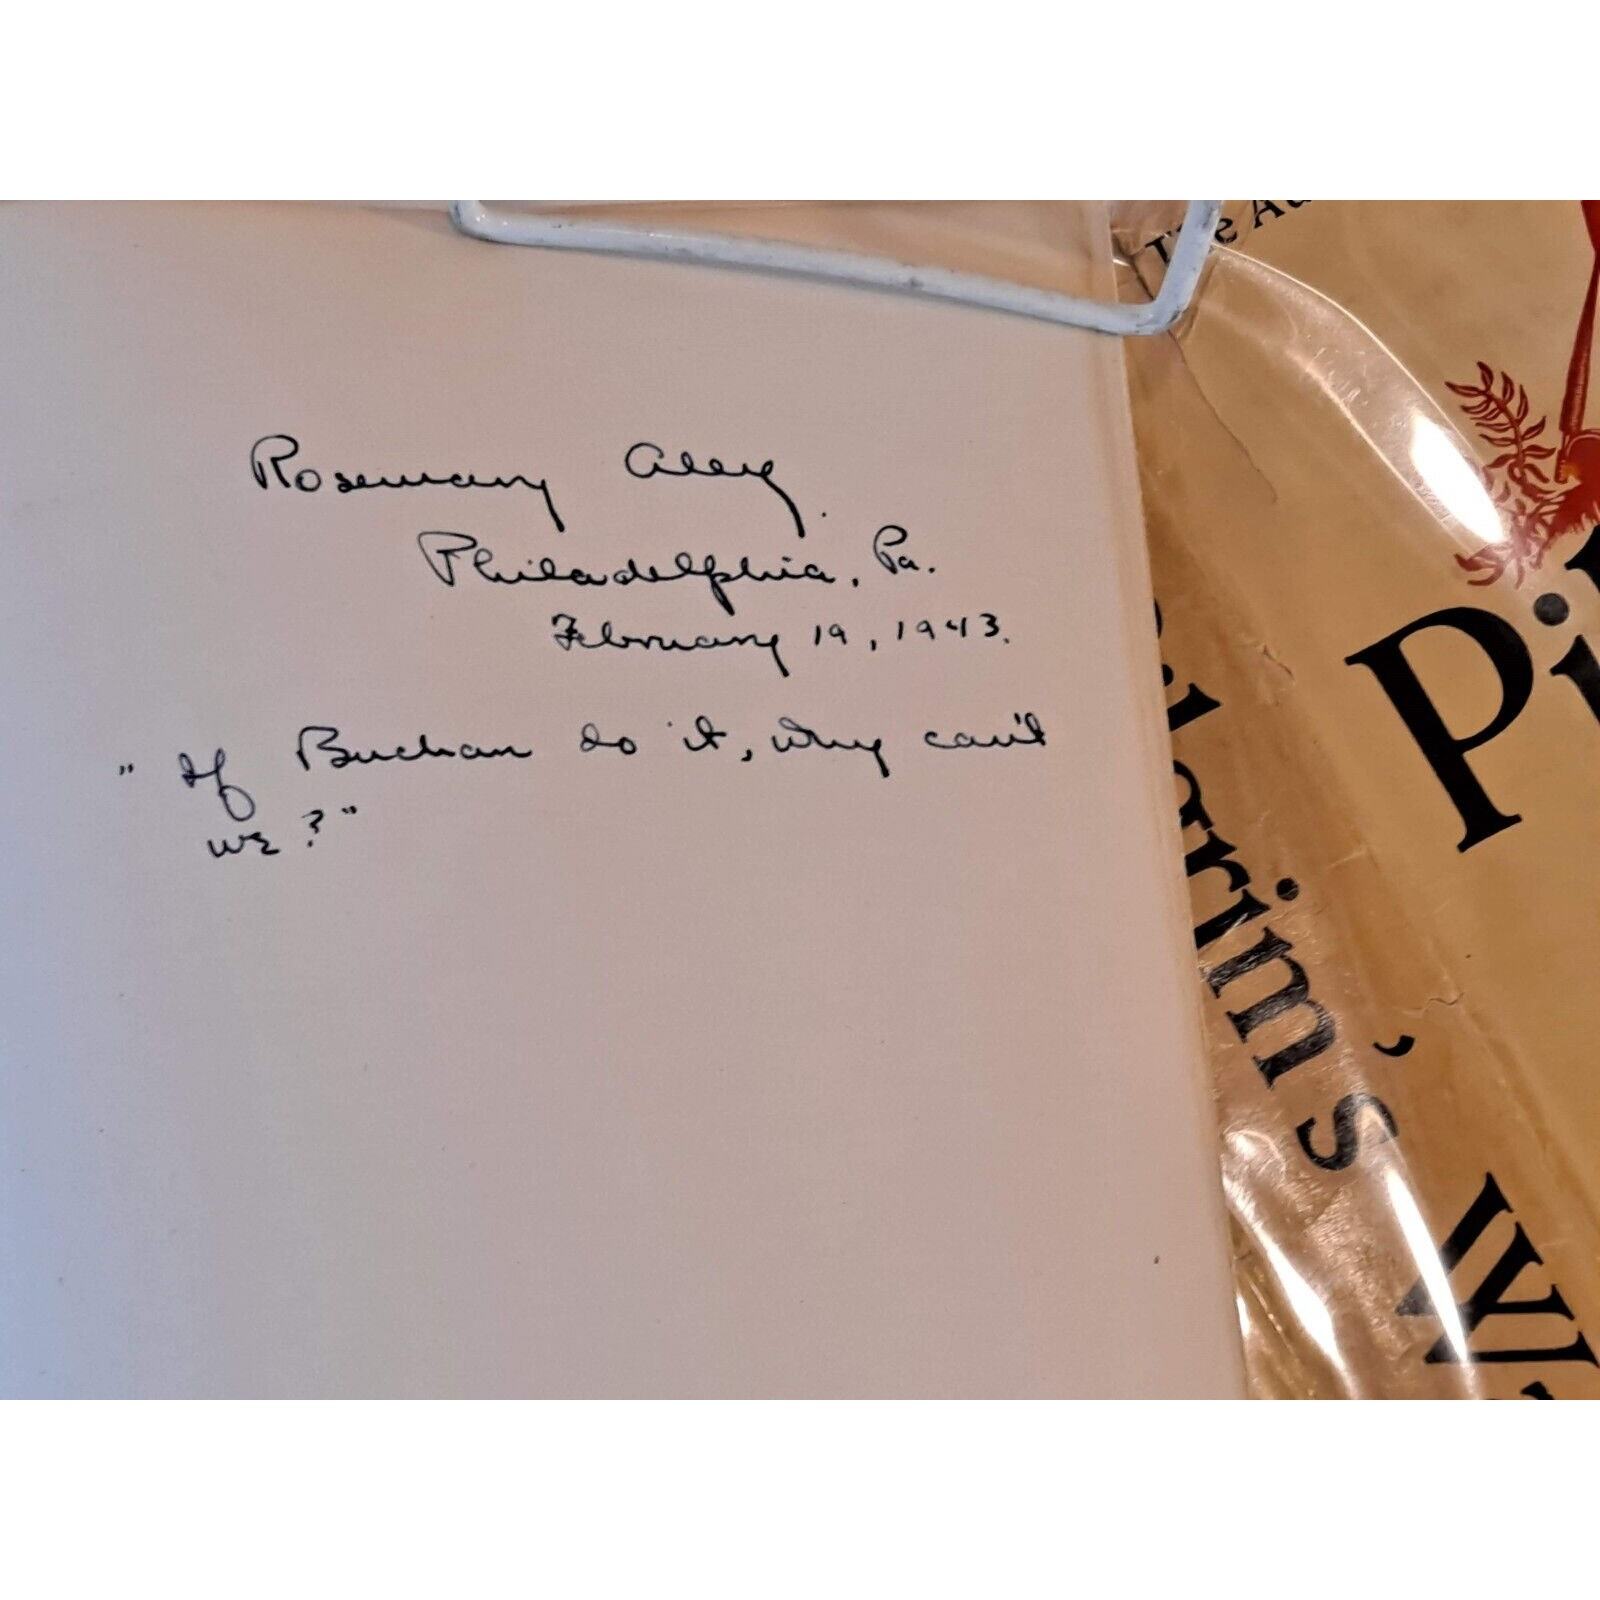 Rosemary Aley
Philadelphia, Pa.
February 19, 1943.
"If Buchan do it, why can't
we?"
Pil
Pilgrim's W